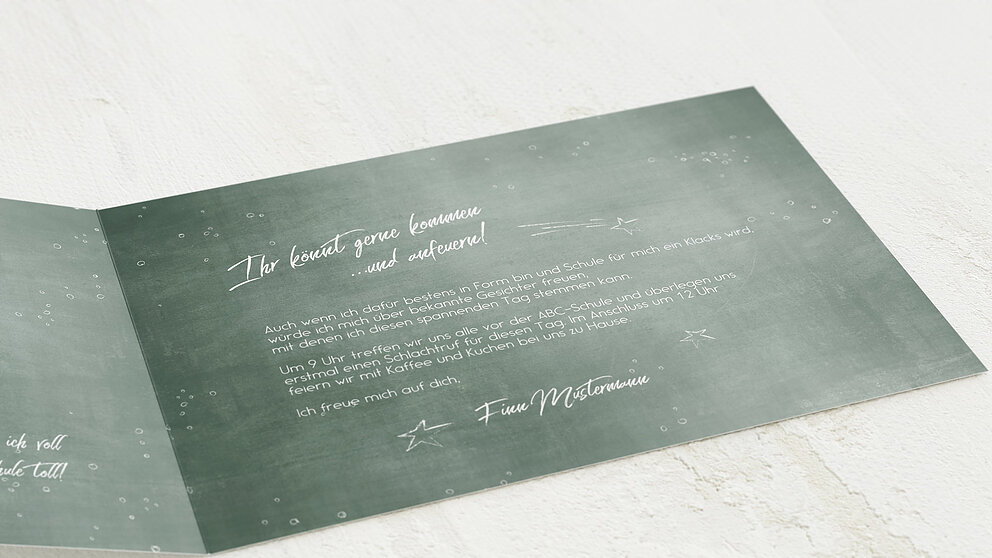 Ihr könnt gerne kommen
...und anfeuern!
Auch wenn ich dafür bestens in Form bin und Schule für mich ein Klacks wird,
würde ich mich über bekannte Gesichter freuen,
mit denen ich diesen spannenden Tag stemmen kann.
Um 9 Uhr treffen wir uns alle vor der ABC-Schule und überlegen uns
erstmal einen Schlachtruf für diesen Tag. Im Anschluss um 12 Uhr
feiern wir mit Kaffee und Kuchen bei uns zu Hause.
Ich freue mich auf dich,
Finn Mustermann
ich roll
toll!